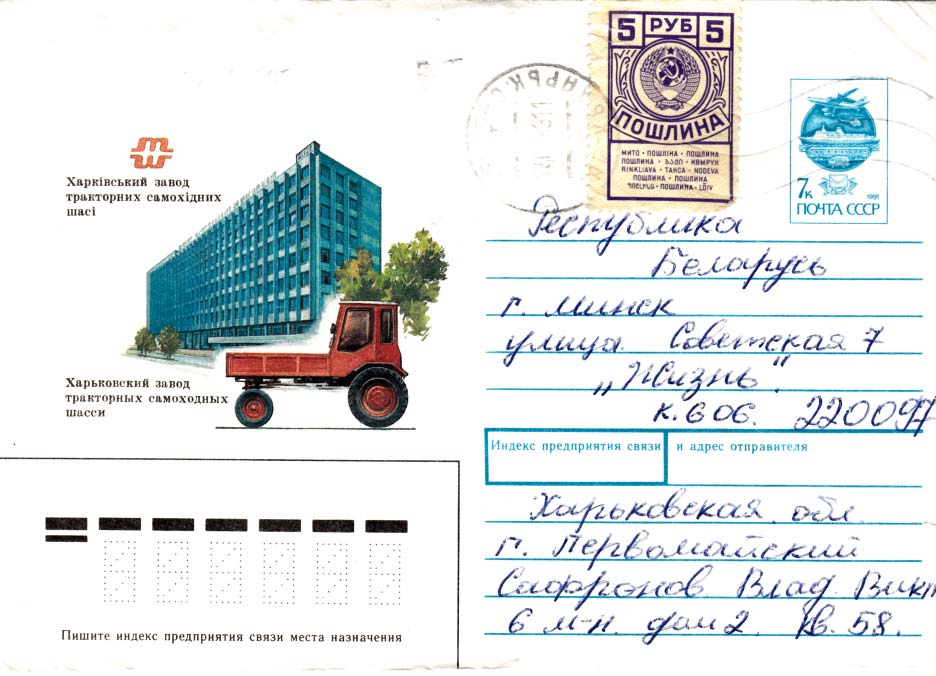 5 РУБ 5
ПОШЛИНА
МИТО · ПОШЛІНА · ПОШЛИНА
RINKLIAVA · ТАКСА · NODEVA
ПОШЛИНА · ПОШЛИНА
ПОШЛИНА · LÕIV
7к
1991
ПОЧТА СССР
Харківський завод
тракторних самохідних
шасі
Харьковский завод
тракторных самоходных
шасси
Республика
Беларусь
г. Минск
улица Советская 7
„Жизнь".
к. 606. 220097
Индекс предприятия связи и адрес отправителя
Харьковская обл.
г. Первомайский
Сафронов Влад Викт
6 м-н. дом 2. кв. 58.
Пишите индекс предприятия связи места назначения